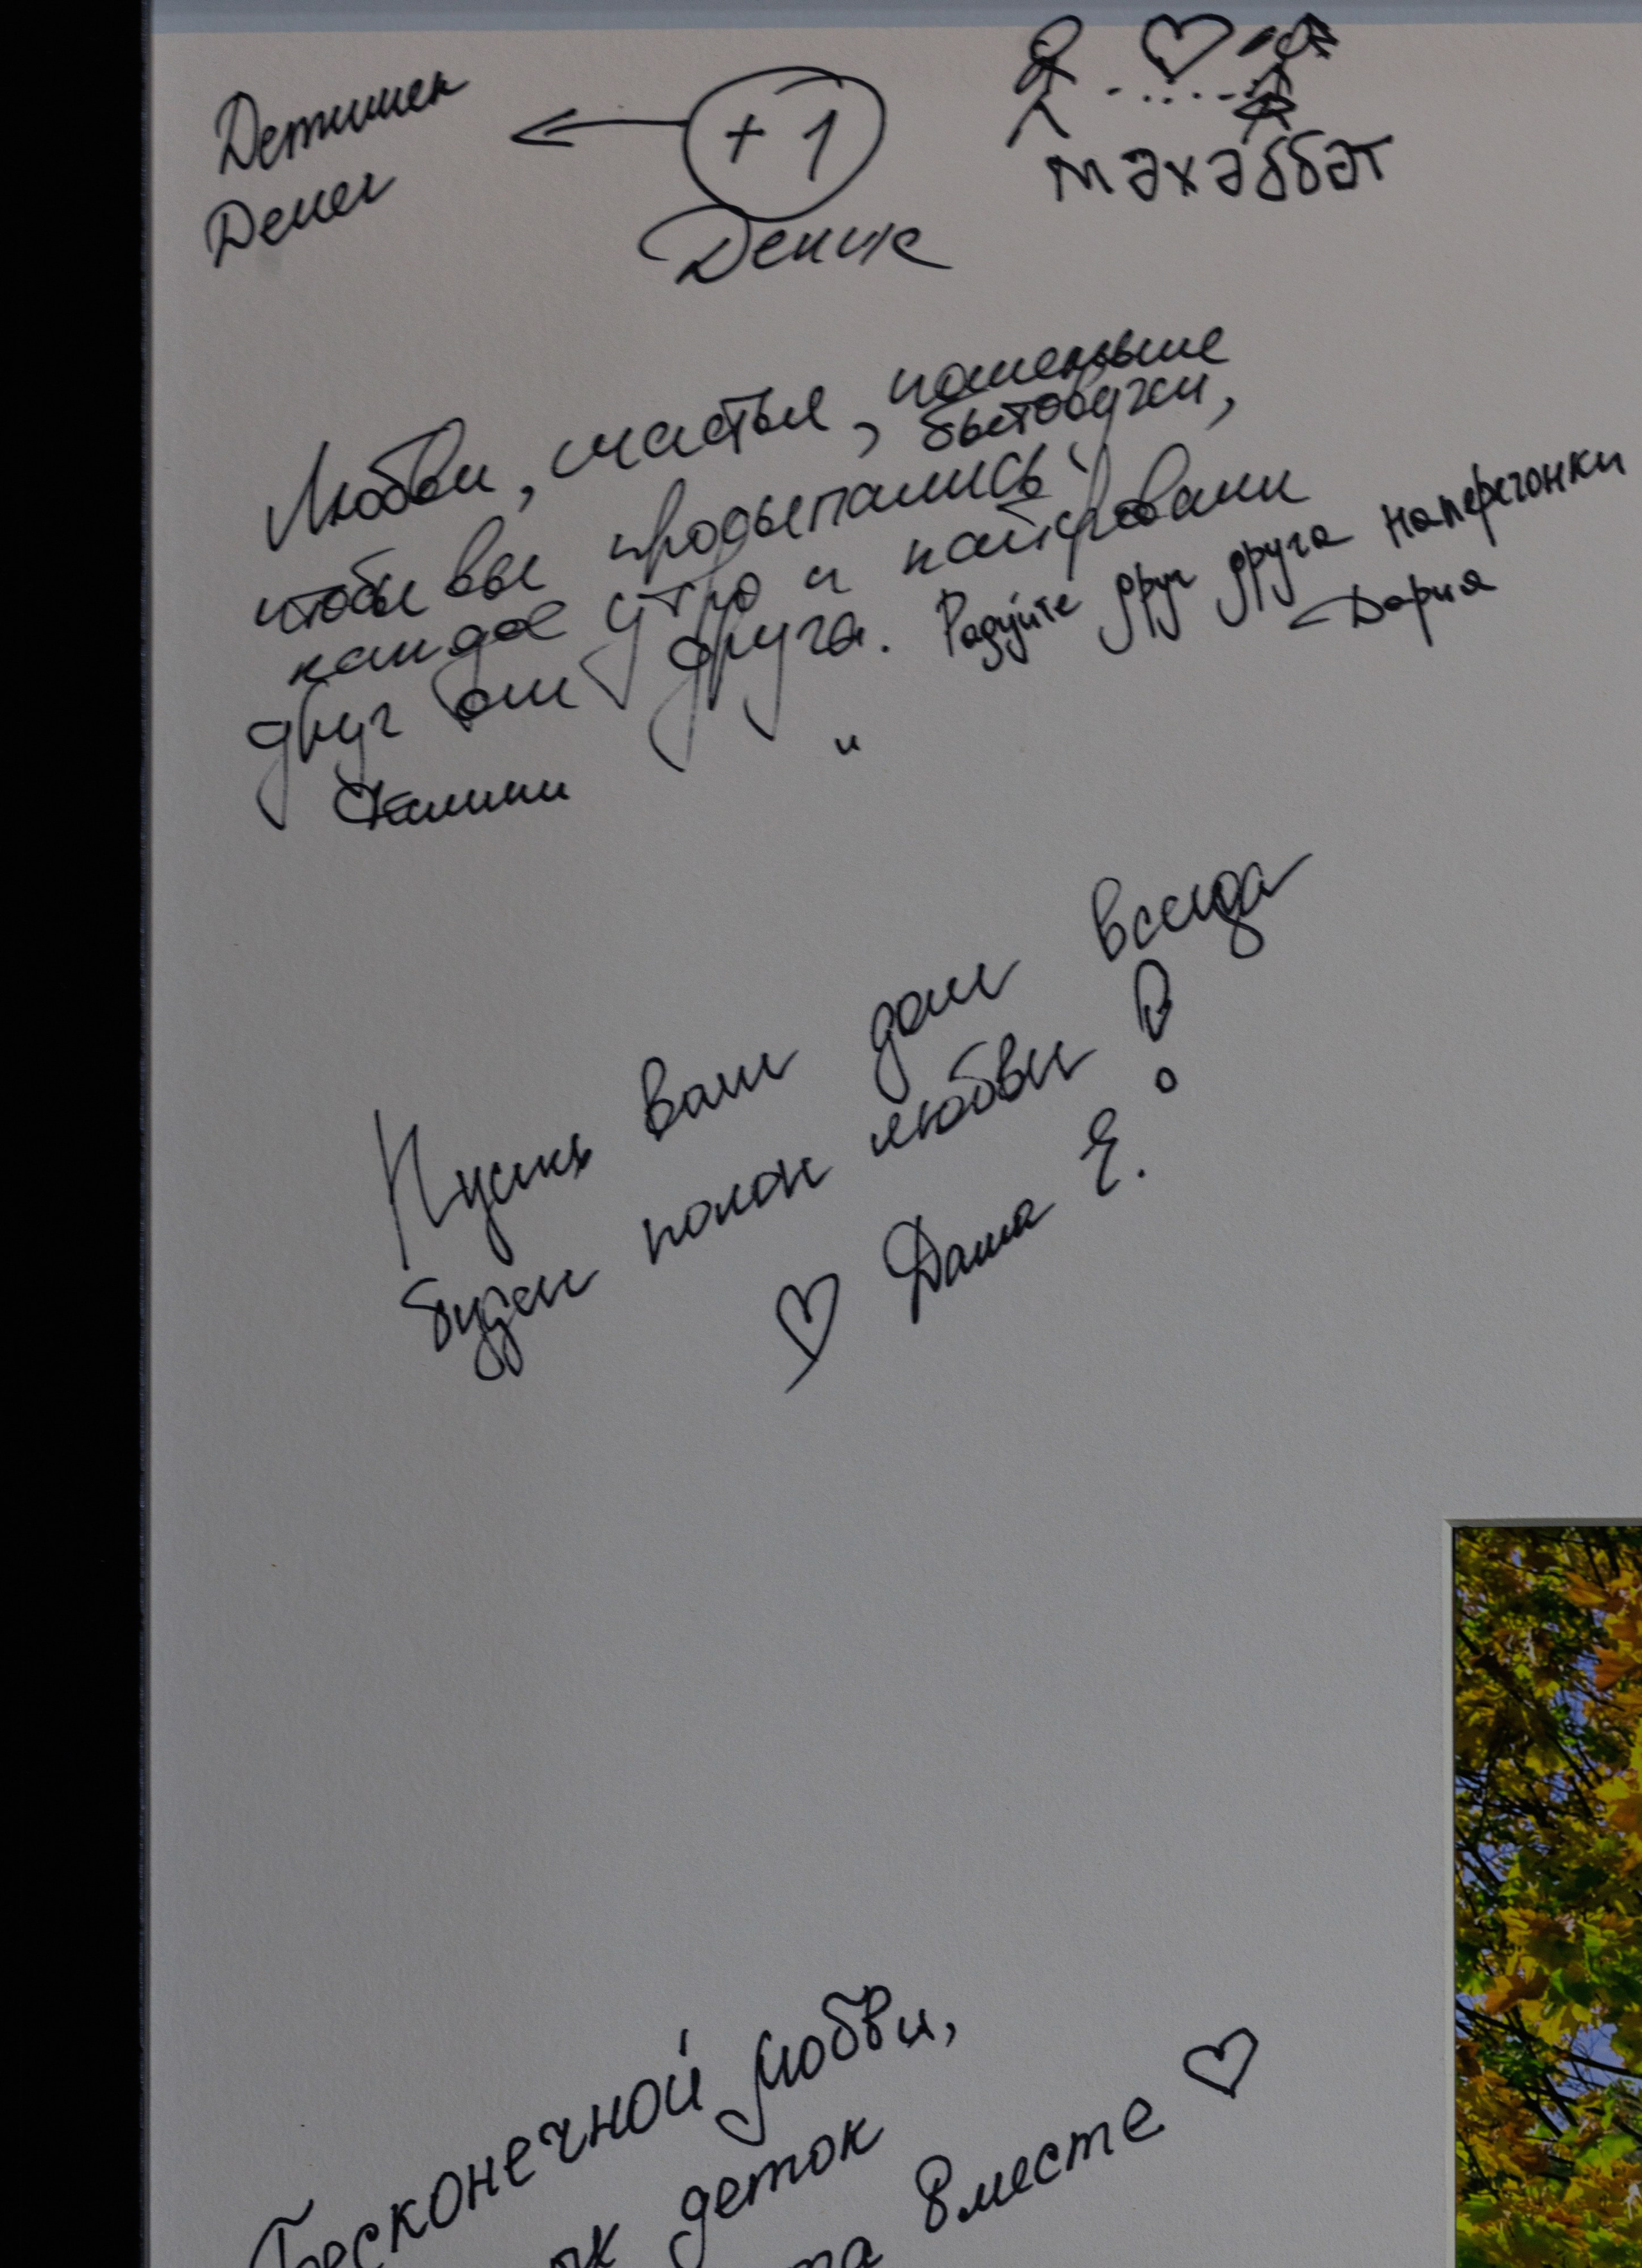 Детишек
Денег
+1
Денис
махаббат
Любви, счастья, поменьше
бытовухи,
чтобы вы просыпались
каждое утро и кайфовали
друг от друга.
Радуйте друг друга наперегонки
Дария
и
Пусть ваш дом всегда
будет полон любви!
Даша Е.
Бесконечной любви,
деток
вместе